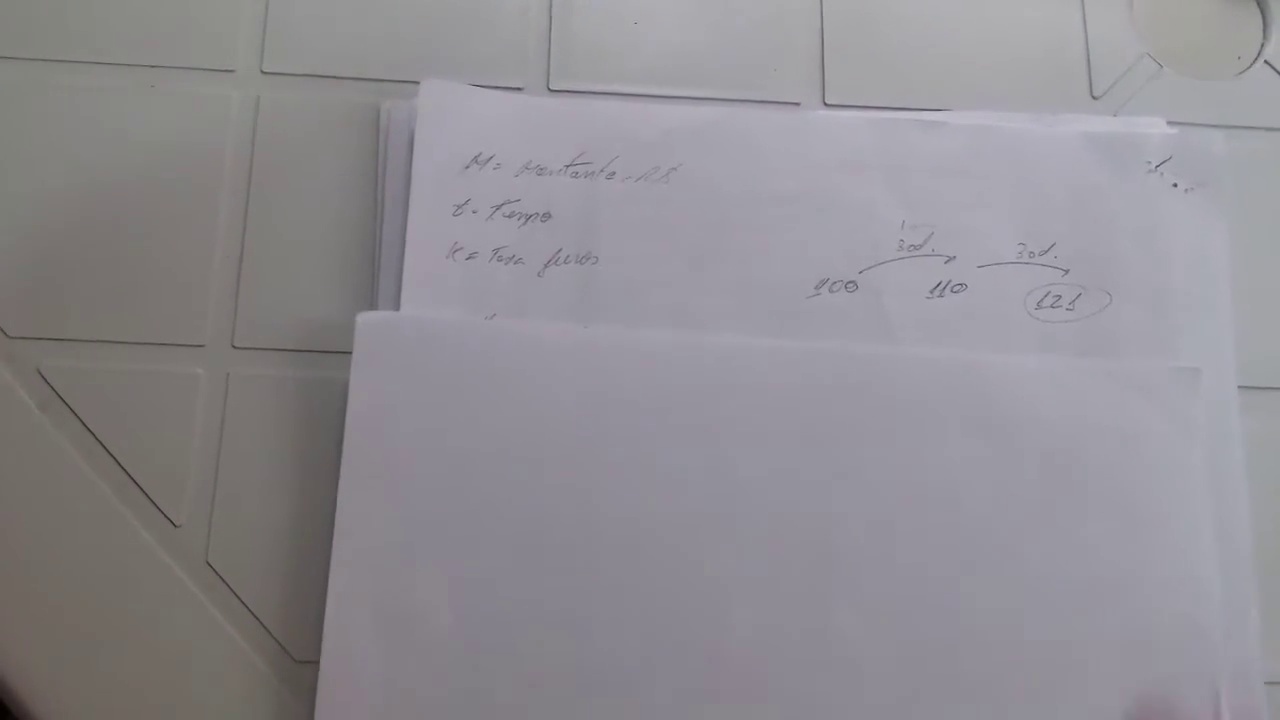 M = Montante - R$
t - Tempo
K = Taxa juros
30d. 30d.
100 110 121